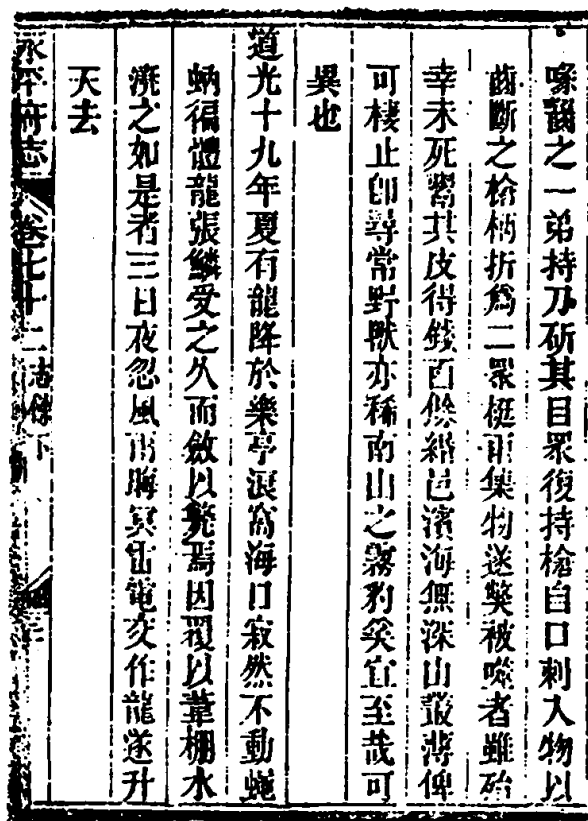 喙齧之一弟持刀斫其目眾復持槍自口刺入物以
齒斷之槍柄折爲二眾梃雨集物遂斃被噬者雖殆
幸未死鬻其皮得錢百餘緡邑濱海無深山叢薄俾
可棲止即尋常野獸亦稀南山之霧豹奚宜至哉可
異也
道光十九年夏有龍降於樂亭浪窩海口寂然不動蠅
蚋徧體龍張鱗受之久而斂以斃焉因覆以葦棚水
潑之如是者三日夜忽風雨晦冥雷電交作龍遂升
天去
永平府志 卷七十二 志餘下